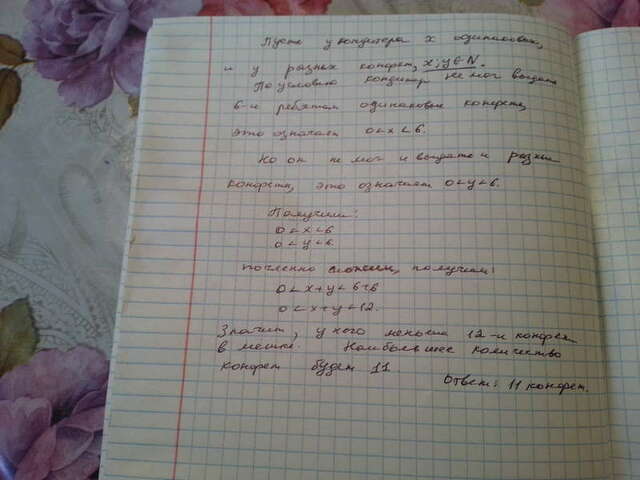 Пусть у кондитера x одинаковых,
и у разных конфет, x; y ∈ N.
По условию кондитер не мог выдать
6-и ребятам одинаковые конфеты,
это означает 0<x<6.
Но он не мог и выдать и разные
конфеты, это означает 0<y<6.
Получим:
0<x<6
0<y<6
почленно сложим, получим:
0<x+y<6+6
0<x+y<12.
Значит, у кого меньше 12-и конфет
в мешке. Наибольшее количество
конфет будет 11
Ответ: 11 конфет.